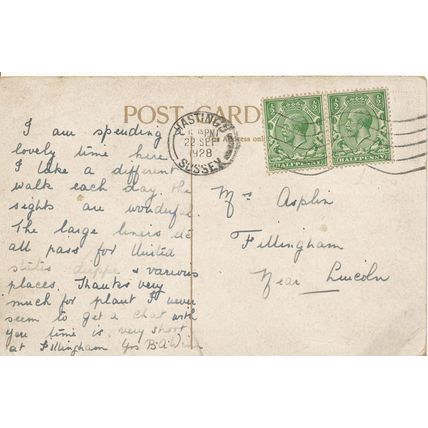 POST CARD
Address only
HASTINGS
PM
22 SEP
1928
SUSSEX
HALFPENNY
HALFPENNY
I am spending
lovely time here
I take a different
walk each day the
sights are wonderful
The large liners etc
all pass for United
states & various
places. Thanks very
much for plant I never
seem to get a chat with
you time is very short
at Fillingham Yrs B.A.
Mrs Asplin
Fillingham
Near Lincoln